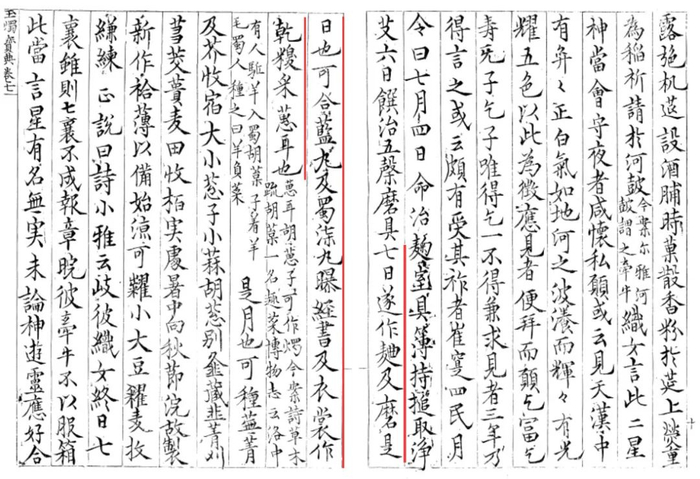 露施机莚設酒脯時菓散香粉於莚上熒重
為稲祈請於河鼓今案尓雅河鼓謂之牽牛織女言此二星
神當會守夜者咸懷私願或云見天漢中
有弈々正白氣如地河之波瀁而輝々有光
耀五色以此為徴應見者便拜而願乞冨乞
壽无子乞子唯得乞一不得兼求見者三年乃
得言之或云頗有受其祚者崔寔四民月
令曰七月四日命治麹室具簿持槌取浄
艾六日饌治五槃磨具七日遂作麹及磨是
日也可合藍丸及蜀柒丸曝經書及衣裳作
乾糗采葸耳也葸耳胡葸子可作燭今案詩草木疏胡菓一名趣菜博物志云洛中
有人駈羊入蜀胡菓子着羊毛蜀人種之曰羊負菜 是月也可種蓝菁
及芥牧宿大小葱子小蒜胡葱别韭藏韭菁刈
芻茭蕡麦田收柏実處暑中向秋節浣故製
新作袷薄以備始凉可糶小大豆糴麦收
縑練 正說曰詩小雅云歧彼織女終日七
襄雖則七襄不成報章睆彼牽牛不以服箱
此當言星有名無実未論神遊靈應好合
玉燭寶典卷七
十